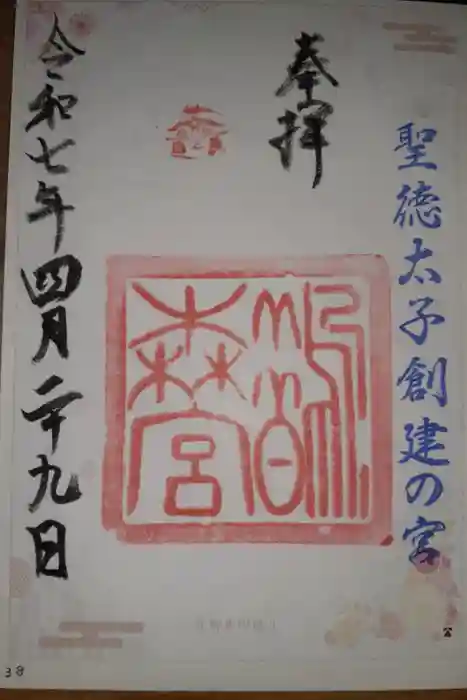 聖徳太子創建の宮
奉拝
鵲森宮
令和七年四月二十九日
38